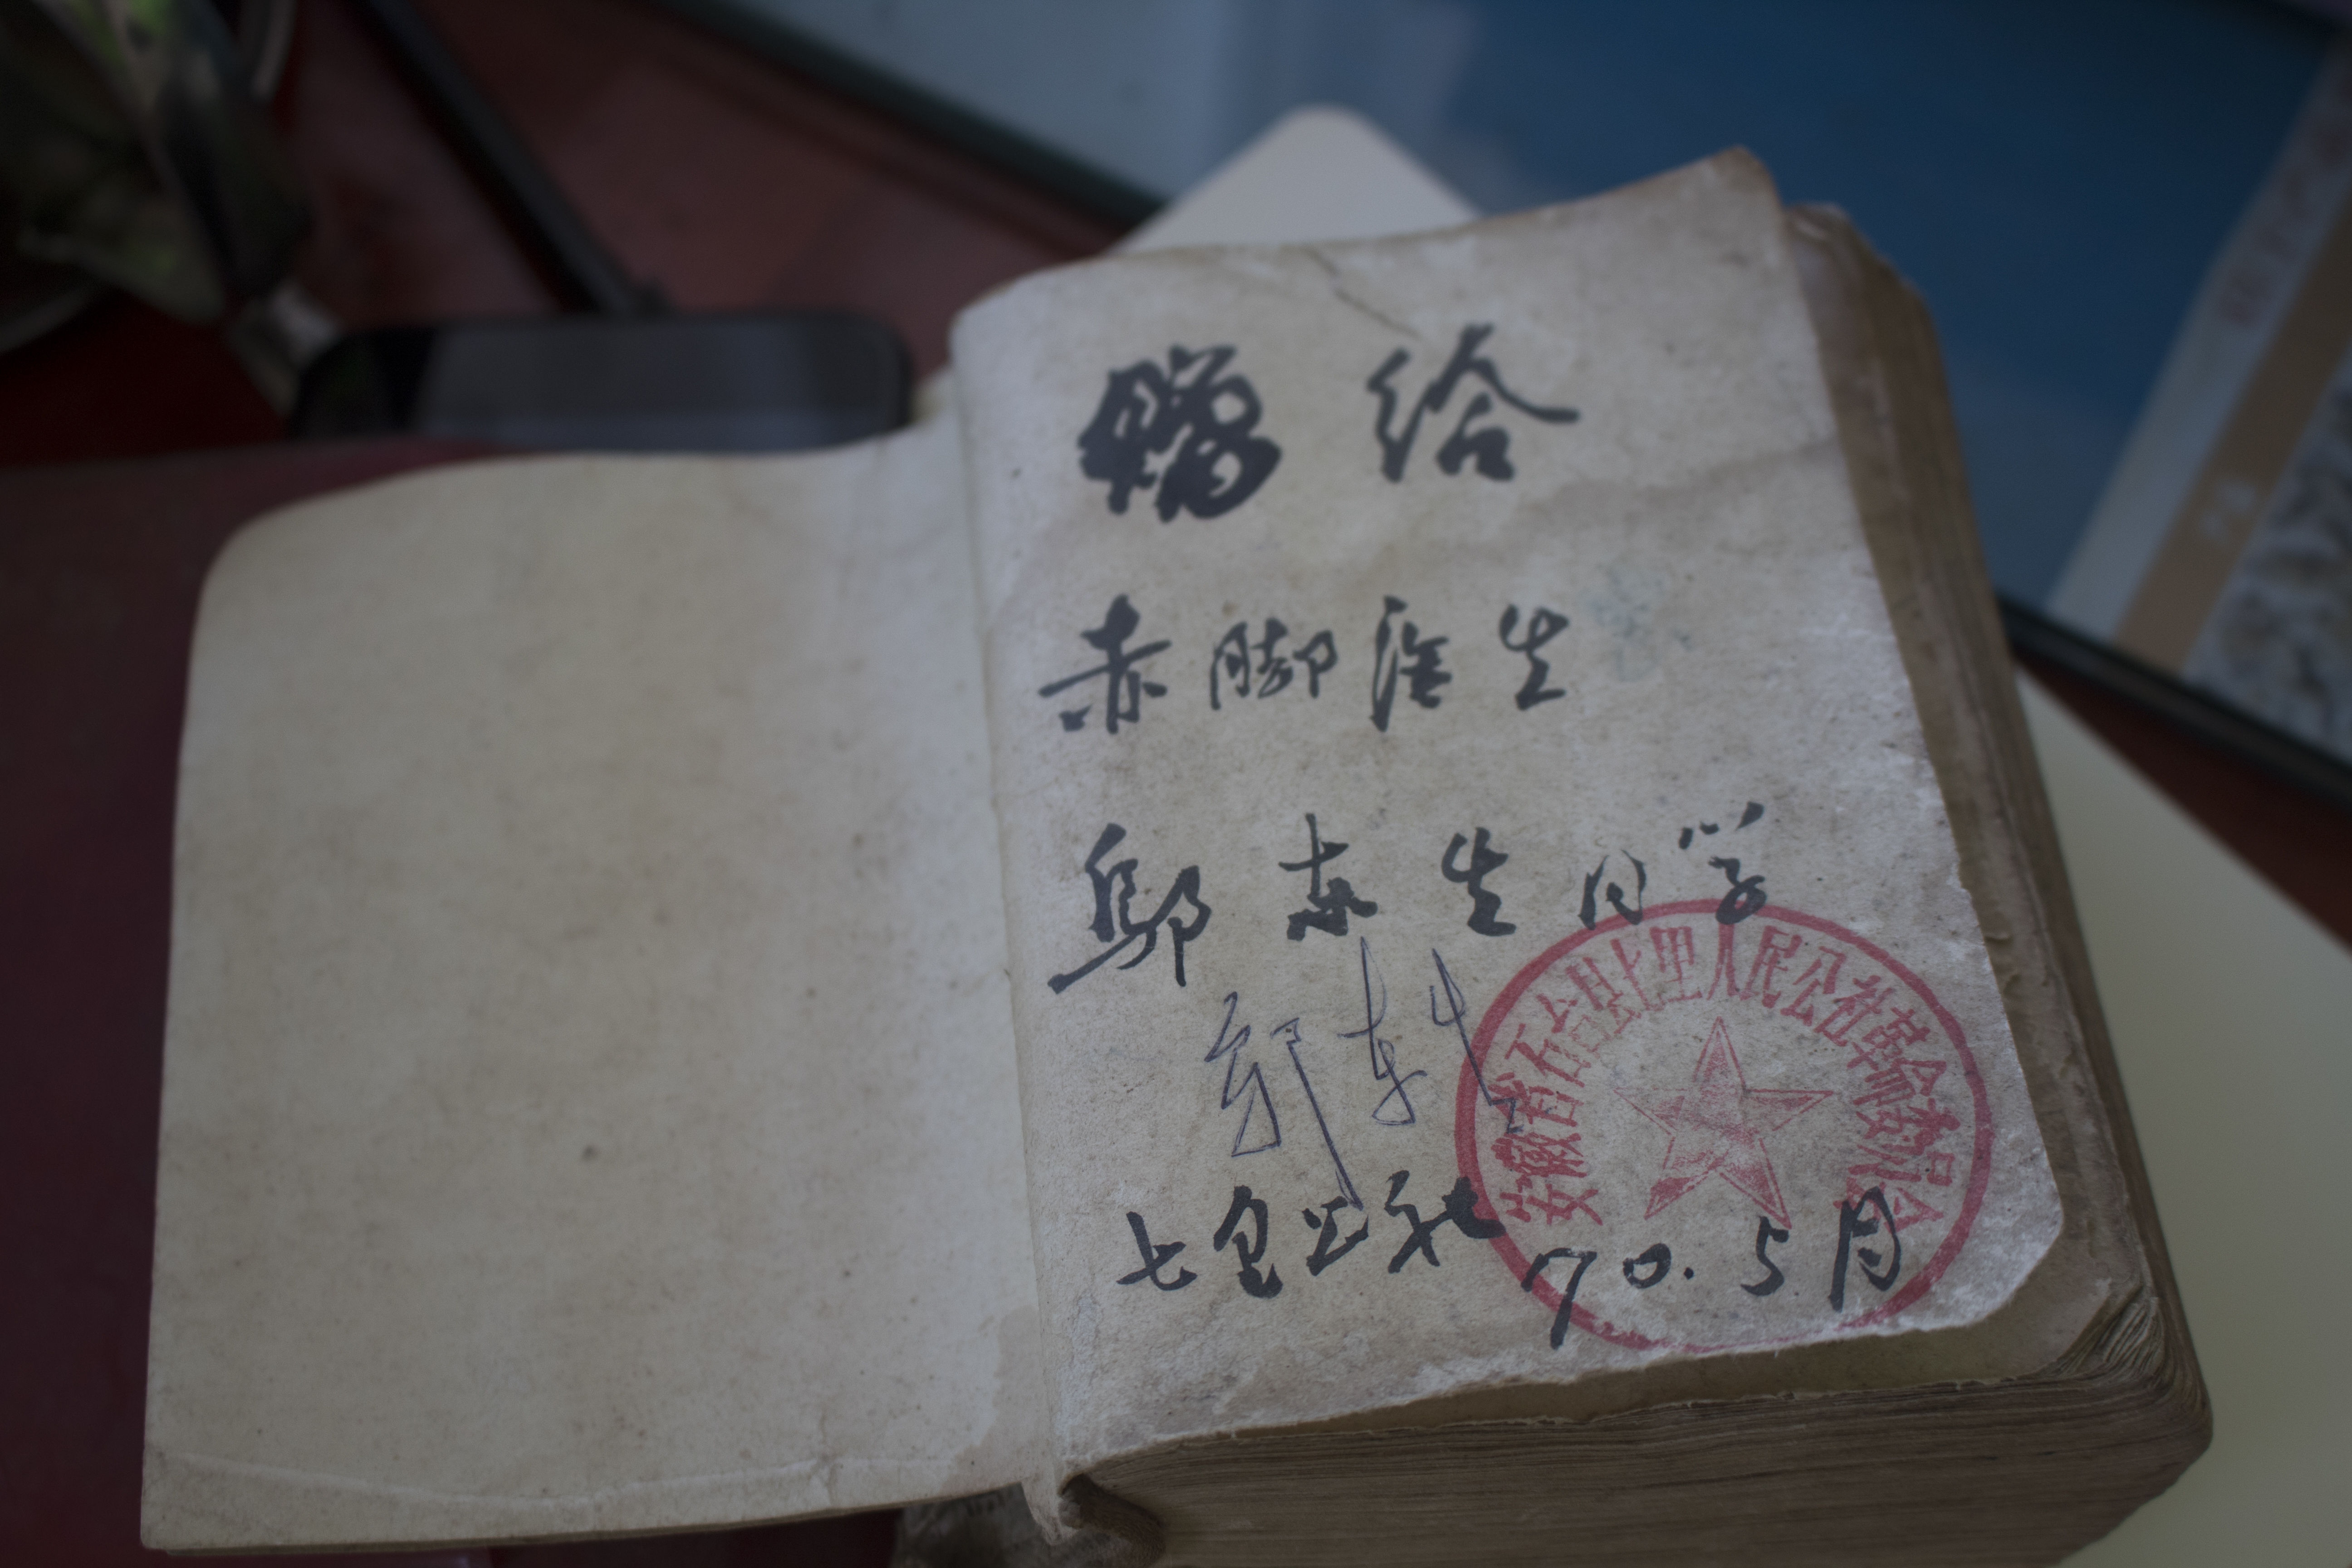 赠给
赤脚医生
邬东生同学
邬东生
安徽省石台县七里人民公社革命委员会
七里公社
70.5月